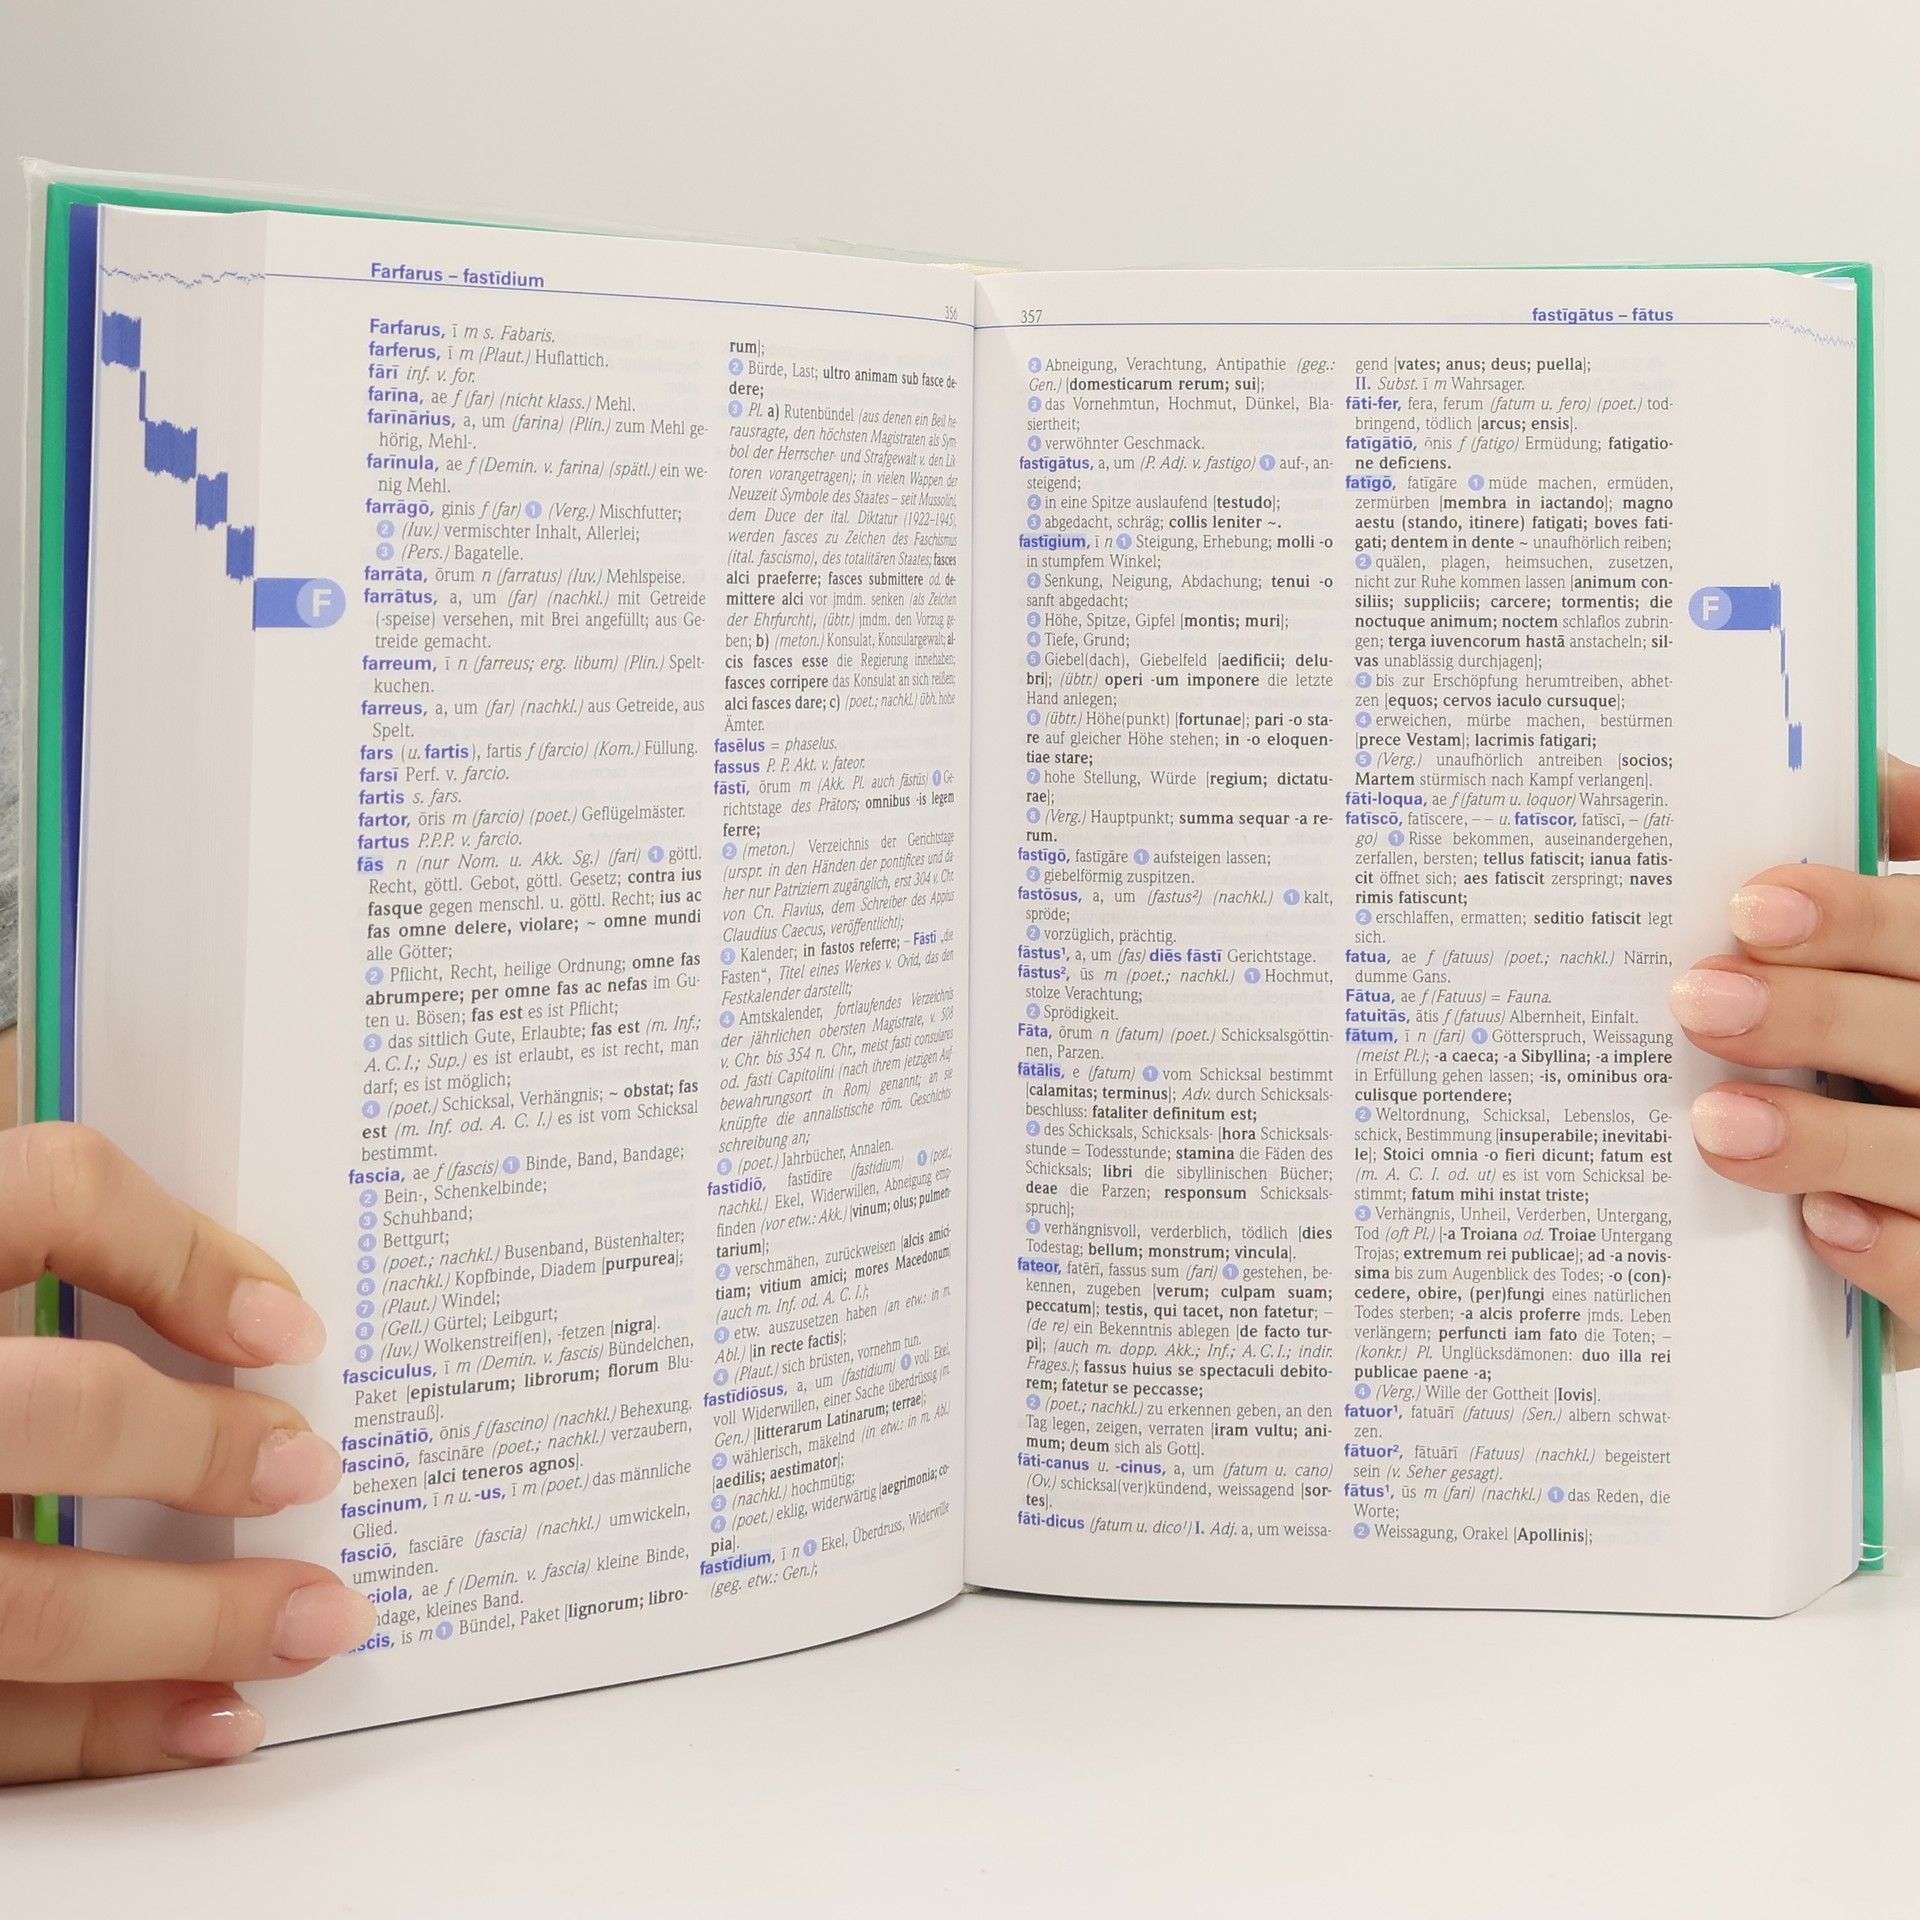 Farfarus – fastīdium
356
Farfarus, ī m s. Fabaris.
farferus, ī m (Plaut.) Huflattich.
fārī inf. v. for.
farīna, ae f (far) (nicht klass.) Mehl.
farīnārius, a, um (farina) (Plin.) zum Mehl ge-
hörig, Mehl-.
farīnula, ae f (Demin. v. farina) (spätl.) ein we-
nig Mehl.
farrāgō, ginis f (far) 1 (Verg.) Mischfutter;
2 (Iuv.) vermischter Inhalt, Allerlei;
3 (Pers.) Bagatelle.
farrāta, ōrum n (farratus) (Iuv.) Mehlspeise.
farrātus, a, um (far) (nachkl.) mit Getreide
(-speise) versehen, mit Brei angefüllt; aus Ge-
treide gemacht.
farreum, ī n (farreus; erg. libum) (Plin.) Spelt-
kuchen.
farreus, a, um (far) (nachkl.) aus Getreide, aus
Spelt.
fars (u. fartis), fartis f (farcio) (Kom.) Füllung.
farsī Perf. v. farcio.
fartis s. fars.
fartor, ōris m (farcio) (poet.) Geflügelmäster.
fartus P.P.P. v. farcio.
fās n (nur Nom. u. Akk. Sg.) (fari) 1 göttl.
Recht, göttl. Gebot, göttl. Gesetz; contra ius
fasque gegen menschl. u. göttl. Recht; ius ac
fas omne delere, violare; ~ omne mundi
alle Götter;
2 Pflicht, Recht, heilige Ordnung; omne fas
abrumpere; per omne fas ac nefas im Gu-
ten u. Bösen; fas est es ist Pflicht;
3 das sittlich Gute, Erlaubte; fas est (m. Inf.;
A. C. I.; Sup.) es ist erlaubt, es ist recht, man
darf; es ist möglich;
4 (poet.) Schicksal, Verhängnis; ~ obstat; fas
est (m. Inf. od. A. C. I.) es ist vom Schicksal
bestimmt.
fascia, ae f (fascis) 1 Binde, Band, Bandage;
2 Bein-, Schenkelbinde;
3 Schuhband;
4 Bettgurt;
5 (poet.; nachkl.) Busenband, Büstenhalter;
6 (nachkl.) Kopfbinde, Diadem [purpurea];
7 (Plaut.) Windel;
8 (Gell.) Gürtel; Leibgurt;
9 (Iuv.) Wolkenstreif(en), -fetzen [nigra].
fasciculus, ī m (Demin. v. fascis) Bündelchen,
Paket [epistularum; librorum; florum Blu-
menstrauß].
fascinātiō, ōnis f (fascino) (nachkl.) Behexung.
fascinō, fascināre (poet.; nachkl.) verzaubern,
behexen [alci teneros agnos].
fascinum, ī n u. -us, ī m (poet.) das männliche
Glied.
fasciō, fasciāre (fascia) (nachkl.) umwickeln,
umwinden.
ciola, ae f (Demin. v. fascia) kleine Binde,
ndage, kleines Band.
scis, is m 1 Bündel, Paket [lignorum; libro-
rum];
2 Bürde, Last; ultro animam sub fasce de-
dere;
3 Pl. a) Rutenbündel (aus denen ein Beil he
rausragte, den höchsten Magistraten als Sym-
bol der Herrscher- und Strafgewalt v. den Lik
toren vorangetragen); in vielen Wappen der
Neuzeit Symbole des Staates – seit Mussolini,
dem Duce der ital. Diktatur (1922–1945),
werden fasces zu Zeichen des Faschismus
(ital. fascismo), des totalitären Staates; fasces
alci praeferre; fasces submittere od. de-
mittere alci vor jmdm. senken (als Zeichen
der Ehrfurcht), (übtr.) jmdm. den Vorzug ge-
ben; b) (meton.) Konsulat, Konsulargewalt; al-
cis fasces esse die Regierung innehaben;
fasces corripere das Konsulat an sich reißen;
alci fasces dare; c) (poet.; nachkl.) übh. hohe
Ämter.
fasēlus = phaselus.
fassus P. P. Akt. v. fateor.
fāstī, ōrum m (Akk. Pl. auch fāstūs) 1 Ge-
richtstage des Prätors; omnibus -is legem
ferre;
2 (meton.) Verzeichnis der Gerichtstage
(urspr. in den Händen der pontifices und da
her nur Patriziern zugänglich, erst 304 v. Chr.
von Cn. Flavius, dem Schreiber des Appius
Claudius Caecus, veröffentlicht);
3 Kalender; in fastos referre; – Fāstī „die
Fasten“, Titel eines Werkes v. Ovid, das den
Festkalender darstellt;
4 Amtskalender, fortlaufendes Verzeichnis
der jährlichen obersten Magistrate, v. 508
v. Chr. bis 354 n. Chr., meist fasti consulares
od. fasti Capitolini (nach ihrem jetzigen Auf-
bewahrungsort in Rom) genannt; an sie
knüpfte die annalistische röm. Geschichts-
schreibung an;
5 (poet.) Jahrbücher, Annalen.
fastīdiō, fastīdīre (fastidium) 1 (poet.;
nachkl.) Ekel, Widerwillen, Abneigung emp-
finden (vor etw.: Akk.) [vinum; olus; pulmen-
tarium];
2 verschmähen, zurückweisen [alcis amici-
tiam; vitium amici; mores Macedonum]
(auch m. Inf. od. A. C. I.);
3 etw. auszusetzen haben (an etw.: in m.
Abl.) [in recte factis];
4 (Plaut.) sich brüsten, vornehm tun.
fastīdiōsus, a, um (fastidium) 1 voll Ekel,
voll Widerwillen, einer Sache überdrüssig (m.
Gen.) [litterarum Latinarum; terrae];
2 wählerisch, mäkelnd (in etw.: in m. Abl.)
[aedilis; aestimator];
3 (nachkl.) hochmütig;
4 (poet.) eklig, widerwärtig [aegrimonia; co-
pia].
fastīdium, ī n 1 Ekel, Überdruss, Widerwille
(geg. etw.: Gen.);
F
357
fastīgātus – fātus
2 Abneigung, Verachtung, Antipathie (geg.:
Gen.) [domesticarum rerum; sui];
3 das Vornehmtun, Hochmut, Dünkel, Bla-
siertheit;
4 verwöhnter Geschmack.
fastīgātus, a, um (P. Adj. v. fastigo) 1 auf-, an-
steigend;
2 in eine Spitze auslaufend [testudo];
3 abgedacht, schräg; collis leniter ~.
fastīgium, ī n 1 Steigung, Erhebung; molli -o
in stumpfem Winkel;
2 Senkung, Neigung, Abdachung; tenui -o
sanft abgedacht;
3 Höhe, Spitze, Gipfel [montis; muri];
4 Tiefe, Grund;
5 Giebel(dach), Giebelfeld [aedificii; delu-
bri]; (übtr.) operi -um imponere die letzte
Hand anlegen;
6 (übtr.) Höhe(punkt) [fortunae]; pari -o sta-
re auf gleicher Höhe stehen; in -o eloquen-
tiae stare;
7 hohe Stellung, Würde [regium; dictatu-
rae];
8 (Verg.) Hauptpunkt; summa sequar -a re-
rum.
fastīgō, fastīgāre 1 aufsteigen lassen;
2 giebelförmig zuspitzen.
fastōsus, a, um (fastus²) (nachkl.) 1 kalt,
spröde;
2 vorzüglich, prächtig.
fāstus¹, a, um (fas) diēs fāstī Gerichtstage.
fāstus², ūs m (poet.; nachkl.) 1 Hochmut,
stolze Verachtung;
2 Sprödigkeit.
Fāta, ōrum n (fatum) (poet.) Schicksalsgöttin-
nen, Parzen.
fātālis, e (fatum) 1 vom Schicksal bestimmt
[calamitas; terminus]; Adv. durch Schicksals-
beschluss: fataliter definitum est;
2 des Schicksals, Schicksals- [hora Schicksals-
stunde = Todesstunde; stamina die Fäden des
Schicksals; libri die sibyllinischen Bücher;
deae die Parzen; responsum Schicksals-
spruch];
3 verhängnisvoll, verderblich, tödlich [dies
Todestag; bellum; monstrum; vincula].
fateor, fatērī, fassus sum (fari) 1 gestehen, be-
kennen, zugeben [verum; culpam suam;
peccatum]; testis, qui tacet, non fatetur; –
(de re) ein Bekenntnis ablegen [de facto tur-
pi]; (auch m. dopp. Akk.; Inf.; A. C. I.; indir.
Frages.); fassus huius se spectaculi debito-
rem; fatetur se peccasse;
2 (poet.; nachkl.) zu erkennen geben, an den
Tag legen, zeigen, verraten [iram vultu; ani-
mum; deum sich als Gott].
fāti-canus u. -cinus, a, um (fatum u. cano)
(Ov.) schicksal(ver)kündend, weissagend [sor-
tes].
fāti-dicus (fatum u. dico¹) I. Adj. a, um weissa-
gend [vates; anus; deus; puella];
II. Subst. ī m Wahrsager.
fāti-fer, fera, ferum (fatum u. fero) (poet.) tod-
bringend, tödlich [arcus; ensis].
fatīgātiō, ōnis f (fatigo) Ermüdung; fatigatio-
ne deficiens.
fatīgō, fatīgāre 1 müde machen, ermüden,
zermürben [membra in iactando]; magno
aestu (stando, itinere) fatigati; boves fati-
gati; dentem in dente ~ unaufhörlich reiben;
2 quälen, plagen, heimsuchen, zusetzen,
nicht zur Ruhe kommen lassen [animum con-
siliis; suppliciis; carcere; tormentis; die
noctuque animum; noctem schlaflos zubrin-
gen; terga iuvencorum hastā anstacheln; sil-
vas unablässig durchjagen];
3 bis zur Erschöpfung herumtreiben, abhet-
zen [equos; cervos iaculo cursuque];
4 erweichen, mürbe machen, bestürmen
[prece Vestam]; lacrimis fatigari;
5 (Verg.) unaufhörlich antreiben [socios;
Martem stürmisch nach Kampf verlangen].
fāti-loqua, ae f (fatum u. loquor) Wahrsagerin.
fatīscō, fatīscere, – – u. fatīscor, fatīscī, – (fati-
go) 1 Risse bekommen, auseinandergehen,
zerfallen, bersten; tellus fatiscit; ianua fatis-
cit öffnet sich; aes fatiscit zerspringt; naves
rimis fatiscunt;
2 erschlaffen, ermatten; seditio fatiscit legt
sich.
fatua, ae f (fatuus) (poet.; nachkl.) Närrin,
dumme Gans.
Fātua, ae f (Fatuus) = Fauna.
fatuitās, ātis f (fatuus) Albernheit, Einfalt.
fātum, ī n (fari) 1 Götterspruch, Weissagung
(meist Pl.); -a caeca; -a Sibyllina; -a implere
in Erfüllung gehen lassen; -is, ominibus ora-
culisque portendere;
2 Weltordnung, Schicksal, Lebenslos, Ge-
schick, Bestimmung [insuperabile; inevitabi-
le]; Stoici omnia -o fieri dicunt; fatum est
(m. A. C. I. od. ut) es ist vom Schicksal be-
stimmt; fatum mihi instat triste;
3 Verhängnis, Unheil, Verderben, Untergang,
Tod (oft Pl.) [-a Troiana od. Troiae Untergang
Trojas; extremum rei publicae]; ad -a novis-
sima bis zum Augenblick des Todes; -o (con)-
cedere, obire, (per)fungi eines natürlichen
Todes sterben; -a alcis proferre jmds. Leben
verlängern; perfuncti iam fato die Toten; –
(konkr.) Pl. Unglücksdämonen: duo illa rei
publicae paene -a;
4 (Verg.) Wille der Gottheit [Iovis].
fatuor¹, fatuārī (fatuus) (Sen.) albern schwat-
zen.
fātuor², fātuārī (Fatuus) (nachkl.) begeistert
sein (v. Seher gesagt).
fātus¹, ūs m (fari) (nachkl.) 1 das Reden, die
Worte;
2 Weissagung, Orakel [Apollinis];
F